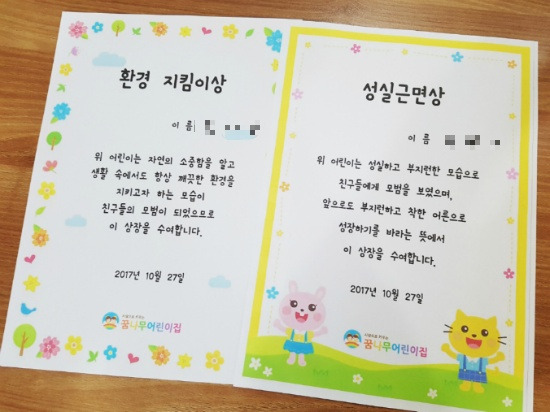 환경 지킴이상
이 름
위 어린이는 자연의 소중함을 알고
생활 속에서도 항상 깨끗한 환경을
지키고자 하는 모습이
친구들의 모범이 되었으므로
이 상장을 수여합니다.
2017년 10월 27일
꿈나무어린이집
성실근면상
이 름
위 어린이는 성실하고 부지런한 모습으로
친구들에게 모범을 보였으며,
앞으로도 부지런하고 착한 어른으로
성장하기를 바라는 뜻에서
이 상장을 수여합니다.
2017년 10월 27일
꿈나무어린이집